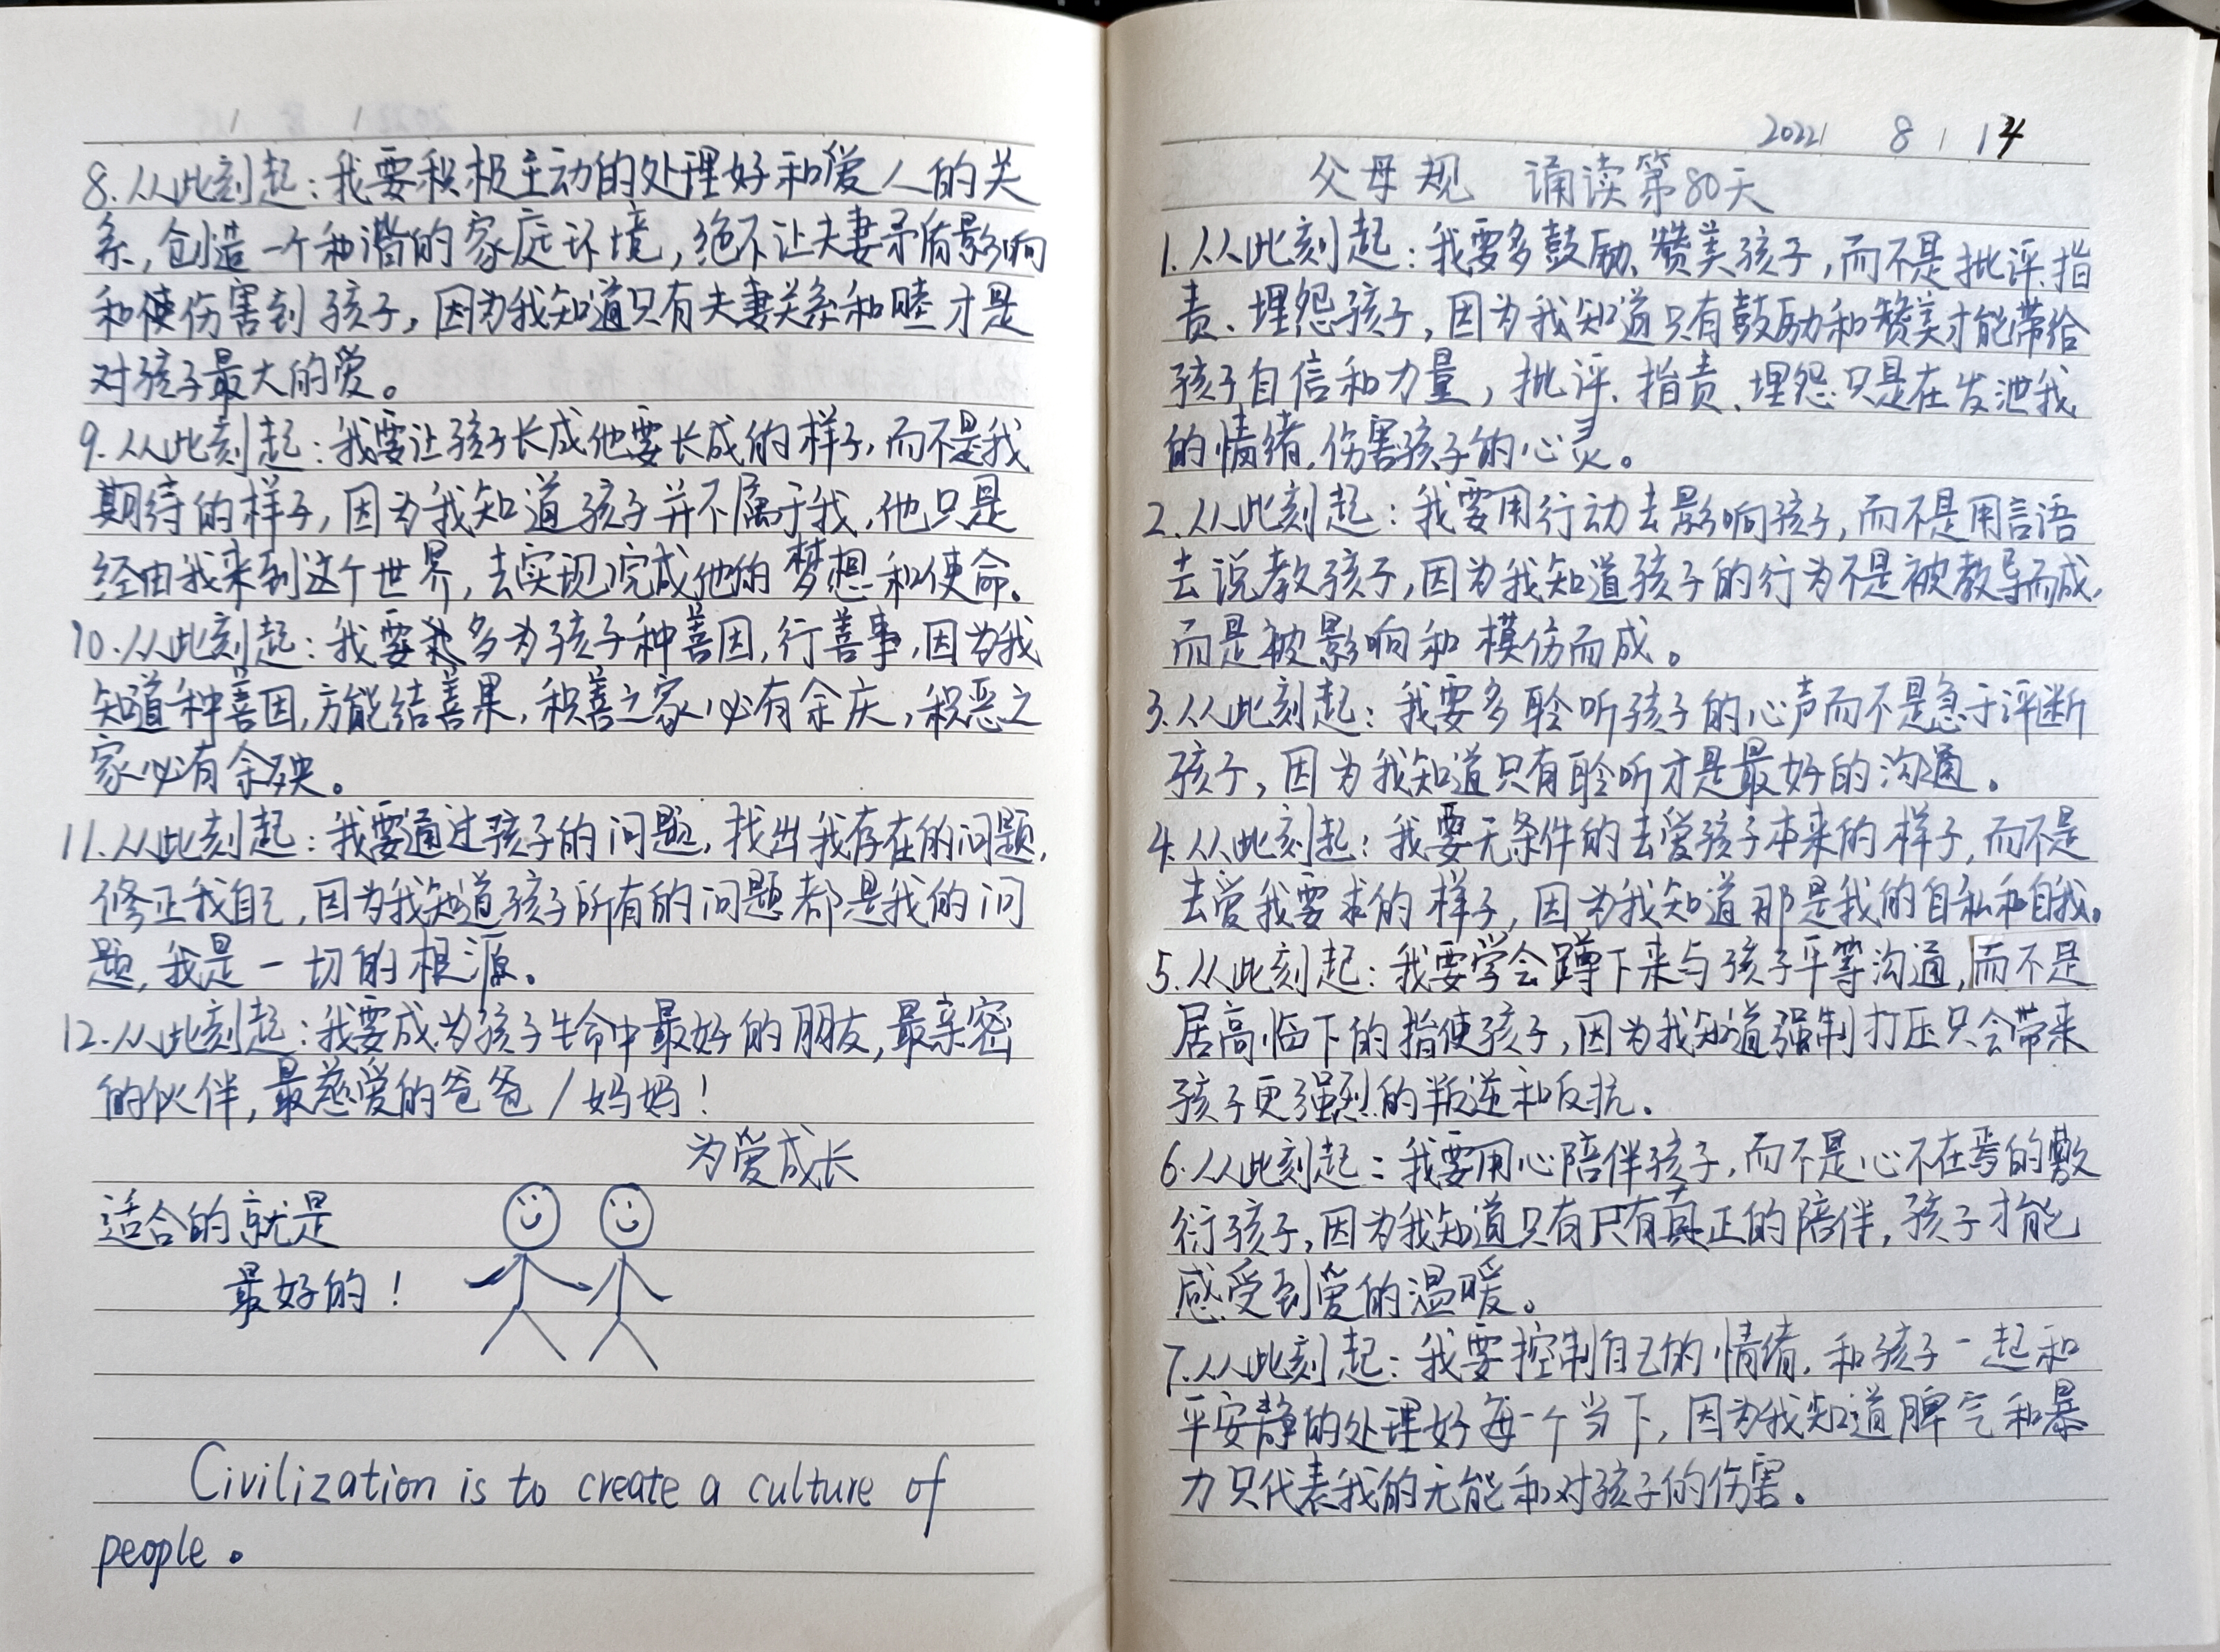 2022 8 14
父母规 诵读第80天
1.从此刻起:我要多鼓励、赞美孩子,而不是批评、指
责、埋怨孩子,因为我知道只有鼓励和赞美才能带给
孩子自信和力量,批评、指责、埋怨只是在发泄我
的情绪,伤害孩子的心灵。
2.从此刻起:我要用行动去影响孩子,而不是用言语
去说教孩子,因为我知道孩子的行为不是被教导而成,
而是被影响和模仿而成。
3.从此刻起:我要多聆听孩子的心声而不是急于评断
孩子,因为我知道只有聆听才是最好的沟通。
4.从此刻起:我要无条件的去爱孩子本来的样子,而不是
去爱我要求的样子,因为我知道那是我的自私和自我。
5.从此刻起:我要学会蹲下来与孩子平等沟通,而不是
居高临下的指使孩子,因为我知道强制打压只会带来
孩子更强烈的叛逆和反抗.
6.从此刻起:我要用心陪伴孩子,而不是心不在焉的敷
衍孩子,因为我知道只有只有真正的陪伴,孩子才能
感受到爱的温暖。
7.从此刻起:我要控制自己的情绪,和孩子一起和
平安静的处理好每一个当下,因为我知道脾气和暴
力只代表我的无能和对孩子的伤害。
8.从此刻起:我要积极主动的处理好和爱人的关
系,创造一个和谐的家庭环境,绝不让夫妻矛盾影响
和使伤害到孩子,因为我知道只有夫妻关系和睦才是
对孩子最大的爱。
9.从此刻起:我要让孩子长成他要长成的样子,而不是我
期待的样子,因为我知道孩子并不属于我,他只是
经由我来到这个世界,去实现完成他的梦想和使命。
10.从此刻起:我要多为孩子种善因,行善事,因为我
知道种善因,方能结善果,积善之家必有余庆,积恶之
家必有余殃。
11.从此刻起:我要通过孩子的问题,找出我存在的问题,
修正我自己,因为我知道孩子所有的问题都是我的问
题,我是一切的根源。
12.从此刻起:我要成为孩子生命中最好的朋友,最亲密
的伙伴,最慈爱的爸爸/妈妈!
为爱成长
适合的就是
最好的!
Civilization is to create a culture of
people。